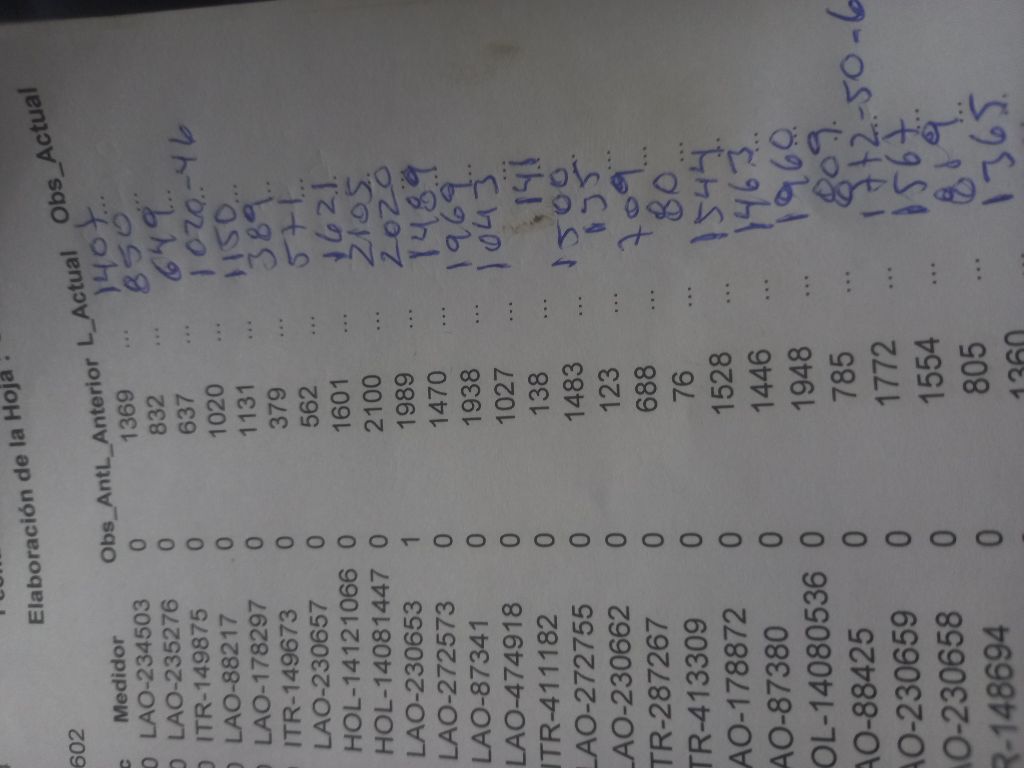 Elaboración de la Hoja :
602
Medidor Obs_Ant L_Anterior L_Actual Obs_Actual
0 LAO-234503 0 1369 ... 1407...
0 LAO-235276 0 832 ... 850...
0 ITR-149875 0 637 ... 649...
0 LAO-88217 0 1020 ... 1020...-46
0 LAO-178297 0 1131 ... 1150...
0 ITR-149673 0 379 ... 389...
LAO-230657 0 562 ... 571...
HOL-14121066 0 1601 ... 1621
HOL-14081447 0 2100 ... 2105
LAO-230653 1 1989 ... 2020
LAO-272573 0 1470 ... 1489
LAO-87341 0 1938 ... 1969...
LAO-474918 0 1027 ... 1043...
ITR-411182 0 138 ... 141
LAO-272755 0 1483 ... 1500
LAO-230662 0 123 ... 135...
TR-287267 0 688 ... 709...
TR-413309 0 76 ... 80...
AO-178872 0 1528 ... 1544...
AO-87380 0 1446 ... 1463...
OL-14080536 0 1948 ... 1960
AO-88425 0 785 ... 809...
AO-230659 0 1772 ... 1772-50-6
AO-230658 0 1554 ... 1567...
R-148694 0 805 ... 819...
1360 ... 1365...